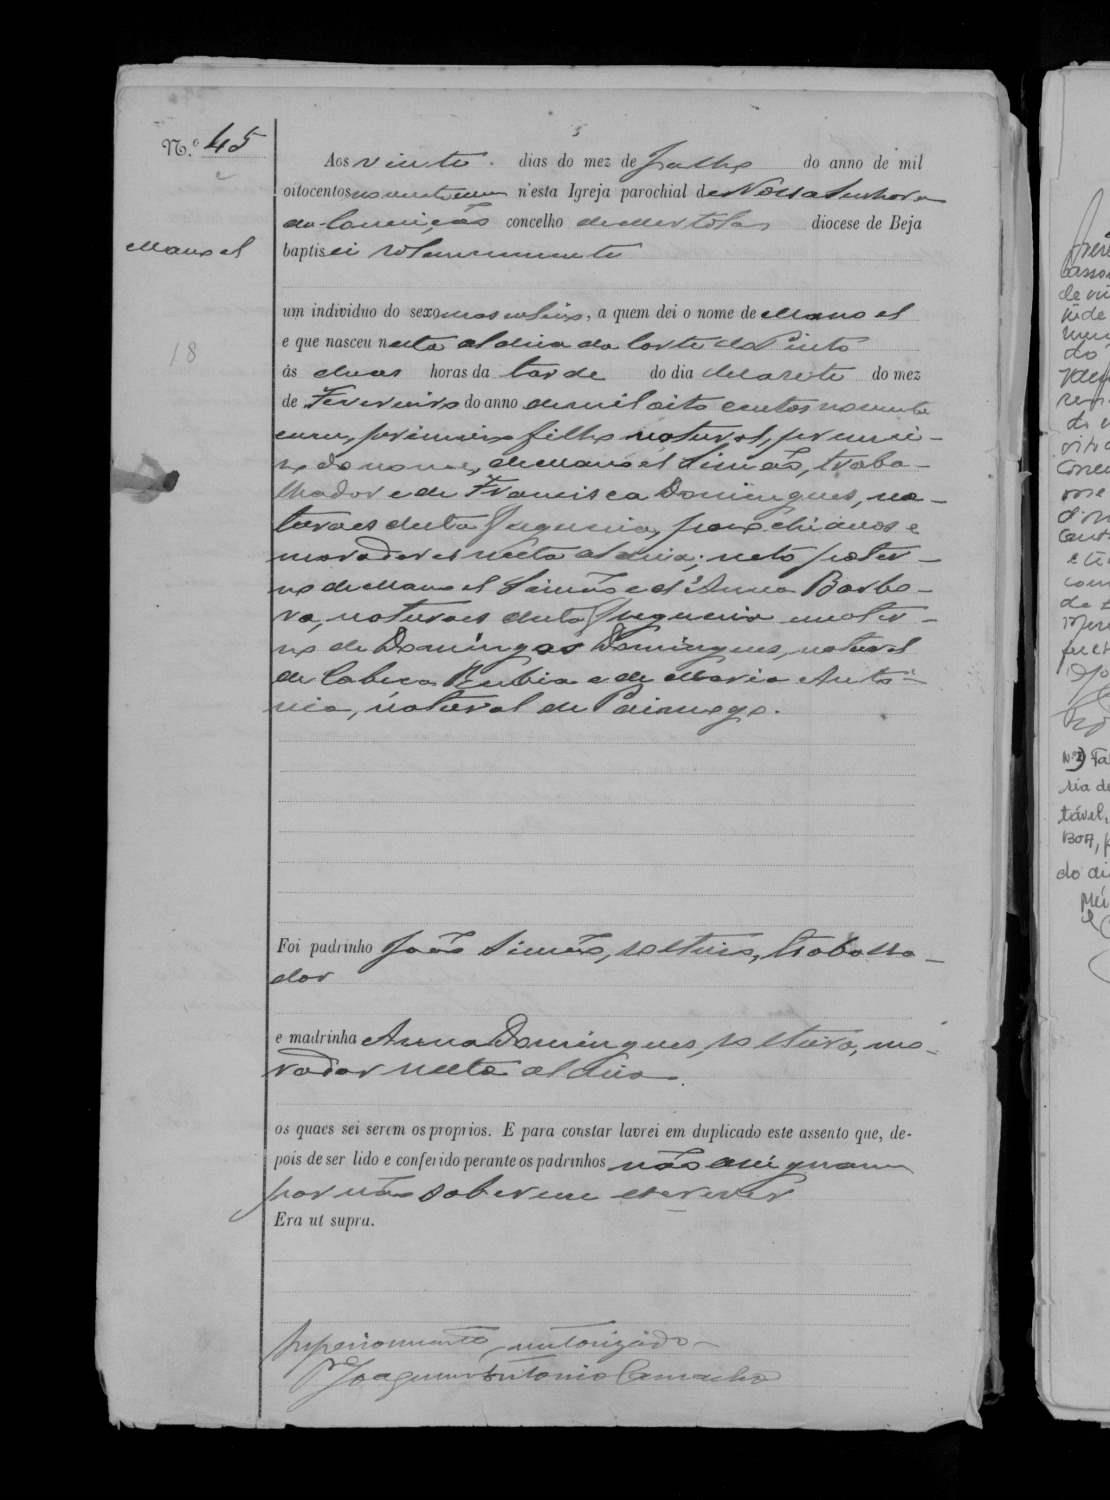 N.º 45
Manoel
18
Aos vinte dias do mez de Julho do anno de mil
oitocentos noventa e um n'esta Igreja parochial de Nossa Senhora
da Conceição concelho de Mertola diocese de Beja
baptisei solemnemente
um individuo do sexo masculino, a quem dei o nome de Manoel
e que nasceu nesta aldeia da Corte do Pinto
ás duas horas da tarde do dia dezasete do mez
de Fevereiro do anno de mil oito centos noventa
e um, primeiro filho natural, primei-
ro do nome, de Manoel Simão, traba-
lhador e de Francisca Domingues, na-
turaes desta freguesia, parochianos e
moradores nesta aldeia; neto pater-
no de Manoel Simão e d'Anna Barba-
ra, naturaes desta freguesia e mater-
no de Domingos Domingues, natural
de Cabeça Rubia e de Maria Antó-
nia, natural de Paimogo.
Foi padrinho João Simão, solteiro, trabalha-
dor
e madrinha Anna Domingues, solteira, mo-
rador nesta aldeia.
os quaes sei serem os proprios. E para constar lavrei em duplicado este assento que, de-
pois de ser lido e conferido perante os padrinhos não assignam
por não saberem escrever
Era ut supra.
Superiormente autorizado
P.e Joaquim Antonio Camacho
Nº 1) Fa
ria de
tável,
BOA, p
do di